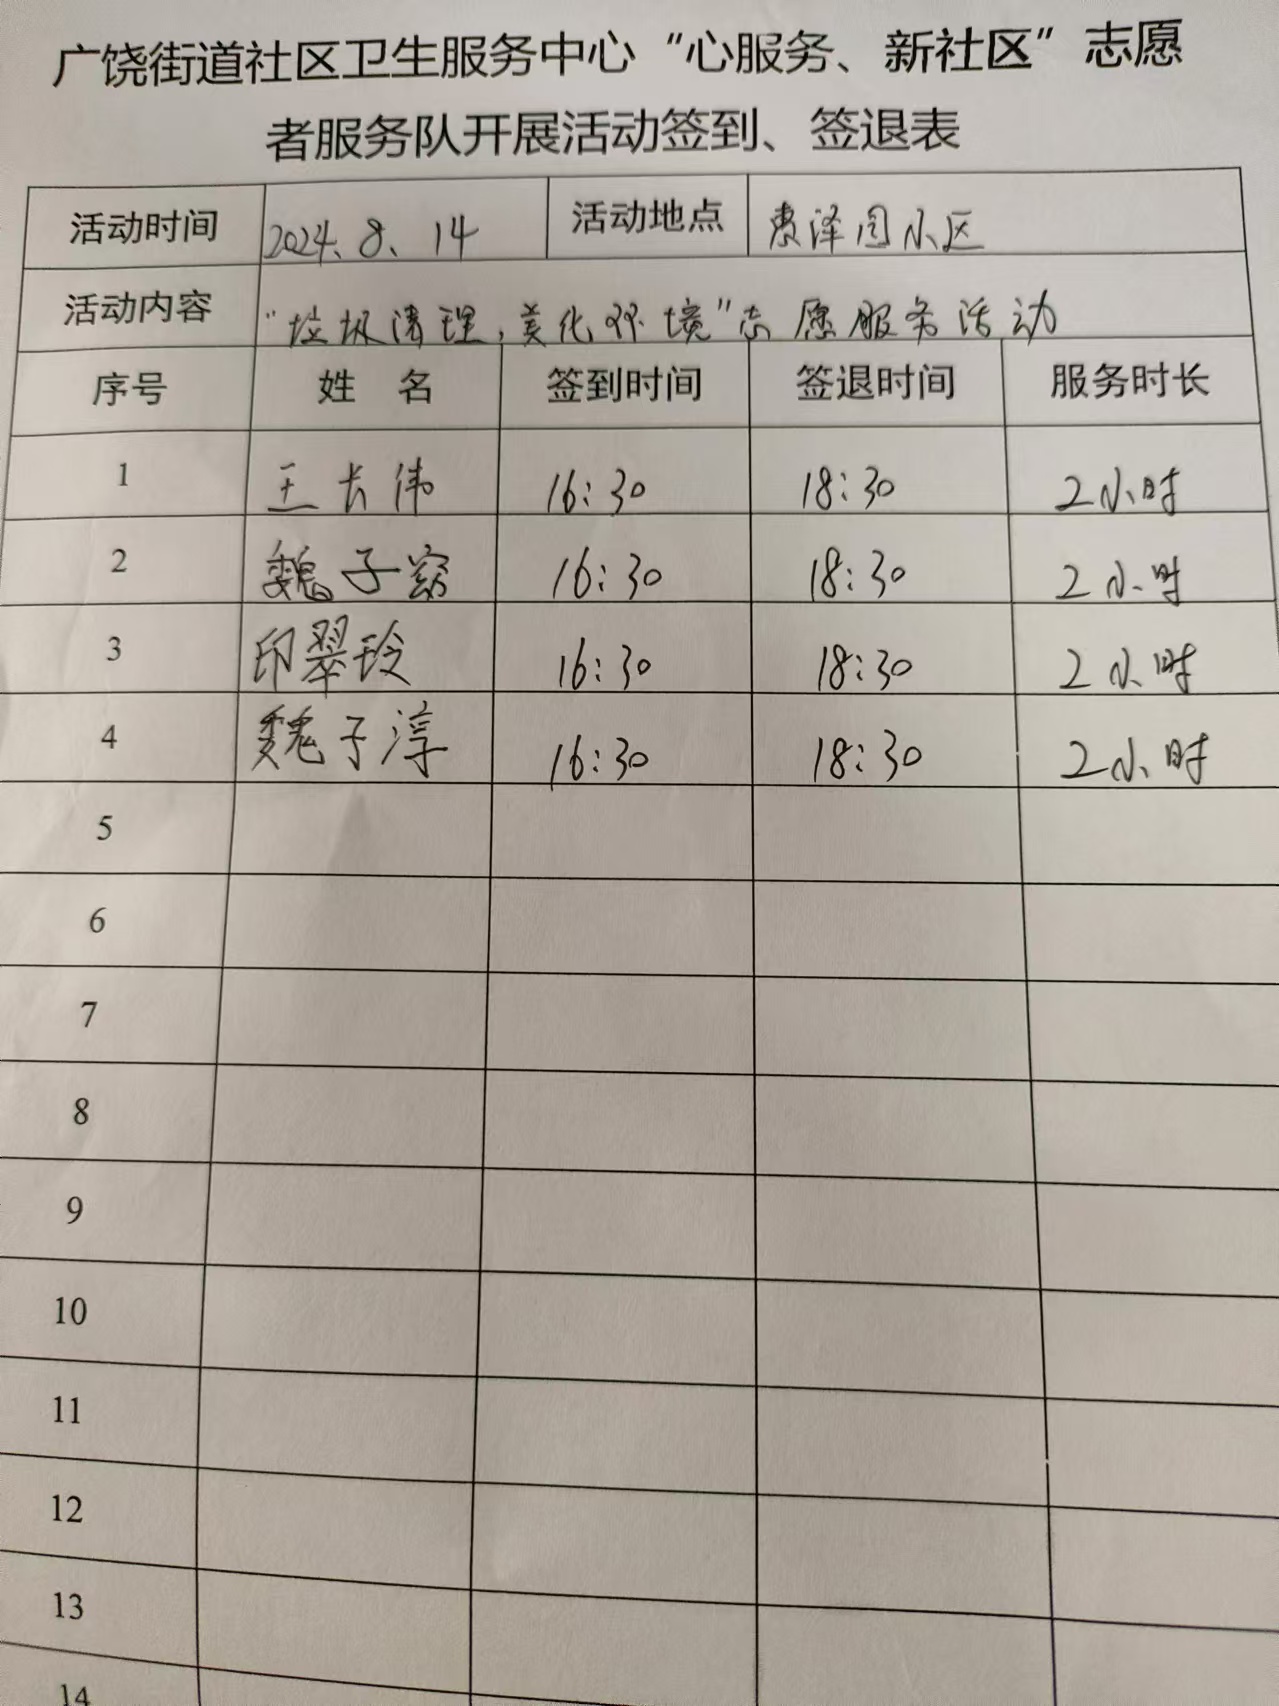 广饶街道社区卫生服务中心“心服务、新社区”志愿
者服务队开展活动签到、签退表
活动时间 2024.8.14 活动地点 惠泽园小区
活动内容 “垃圾清理,美化环境”志愿服务活动
序号 姓 名 签到时间 签退时间 服务时长
1 王长伟 16:30 18:30 2小时
2 魏子窈 16:30 18:30 2小时
3 印翠玲 16:30 18:30 2小时
4 魏子淳 16:30 18:30 2小时
5
6
7
8
9
10
11
12
13
14